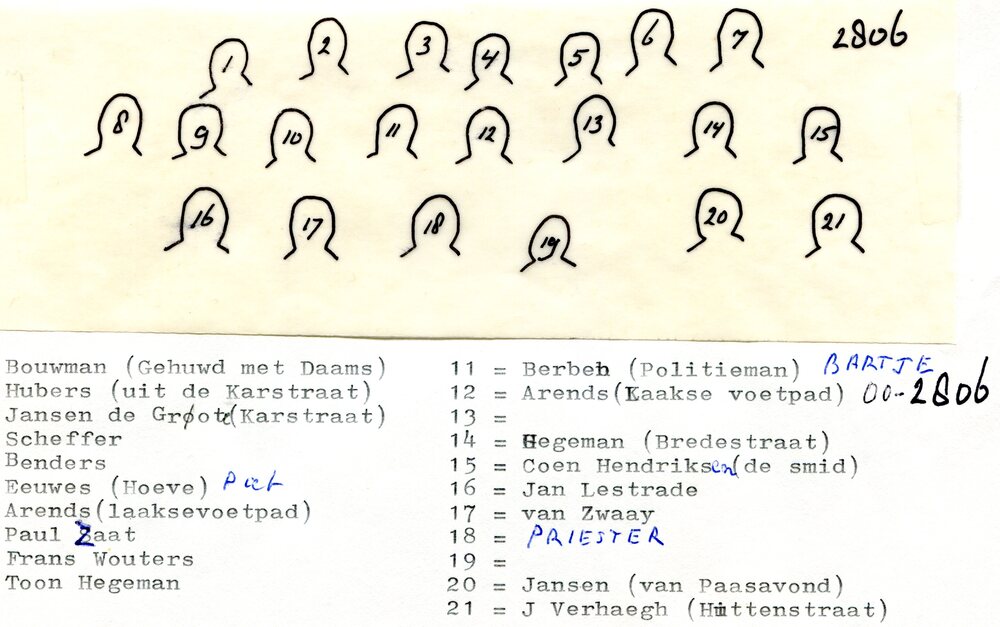 1 2 3 4 5 6 7 2806
8 9 10 11 12 13 14 15
16 17 18 19 20 21
Bouwman (Gehuwd met Daams)
Hubers (uit de Karstraat)
Jansen de Groote(Karstraat)
Scheffer
Benders
Eeuwes (Hoeve) Piet
Arends(laaksevoetpad)
Paul Zaat
Frans Wouters
Toon Hegeman
11 = Berben (Politieman) BARTJE
12 = Arends(Laakse voetpad) 00-2806
13 =
14 = Hegeman (Bredestraat)
15 = Coen Hendriksen(de smid)
16 = Jan Lestrade
17 = van Zwaay
18 = PRIESTER
19 =
20 = Jansen (van Paasavond)
21 = J Verhaegh (Huttenstraat)